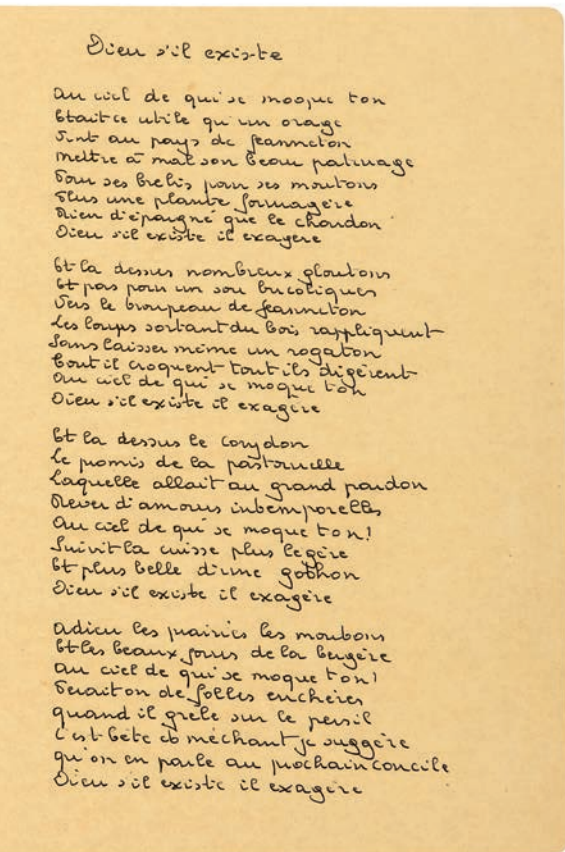 Dieu s'il existe
Au ciel de qui se moque ton
Etait ce utile qu'un orage
Vint au pays de Jeanneton
Mettre à mal son beau paturage
Pour ses brebis pour ses moutons
Plus une plante fourragère
Rien d'épargné que le chardon
Dieu s'il existe il exagere
Et la dessus nombreux gloutons
Et pas pour un sou bucoliques
Vers le troupeau de Jeanneton
Les loups sortant du bois rappliquent
Sans laisser meme un rogaton
Tout il croquent tout ils digèrent
Au ciel de qui se moque ton
Dieu s'il existe il exagère
Et la dessus le corydon
Le promis de la pastourelle
Laquelle allait au grand pardon
Rever d'amours intemporelles
Au ciel de qui se moque ton!
Suivit la cuisse plus legère
Et plus belle d'une gothon
Dieu s'il existe il exagère
Adieu les prairies les moutons
Et les beaux jours de la bergère
Au ciel de qui se moque ton!
Ferait on de folles enchères
quand il grèle sur le persil
c'est bète et méchant je suggère
qu'on en parle au prochain concile
Dieu s'il existe il exagère